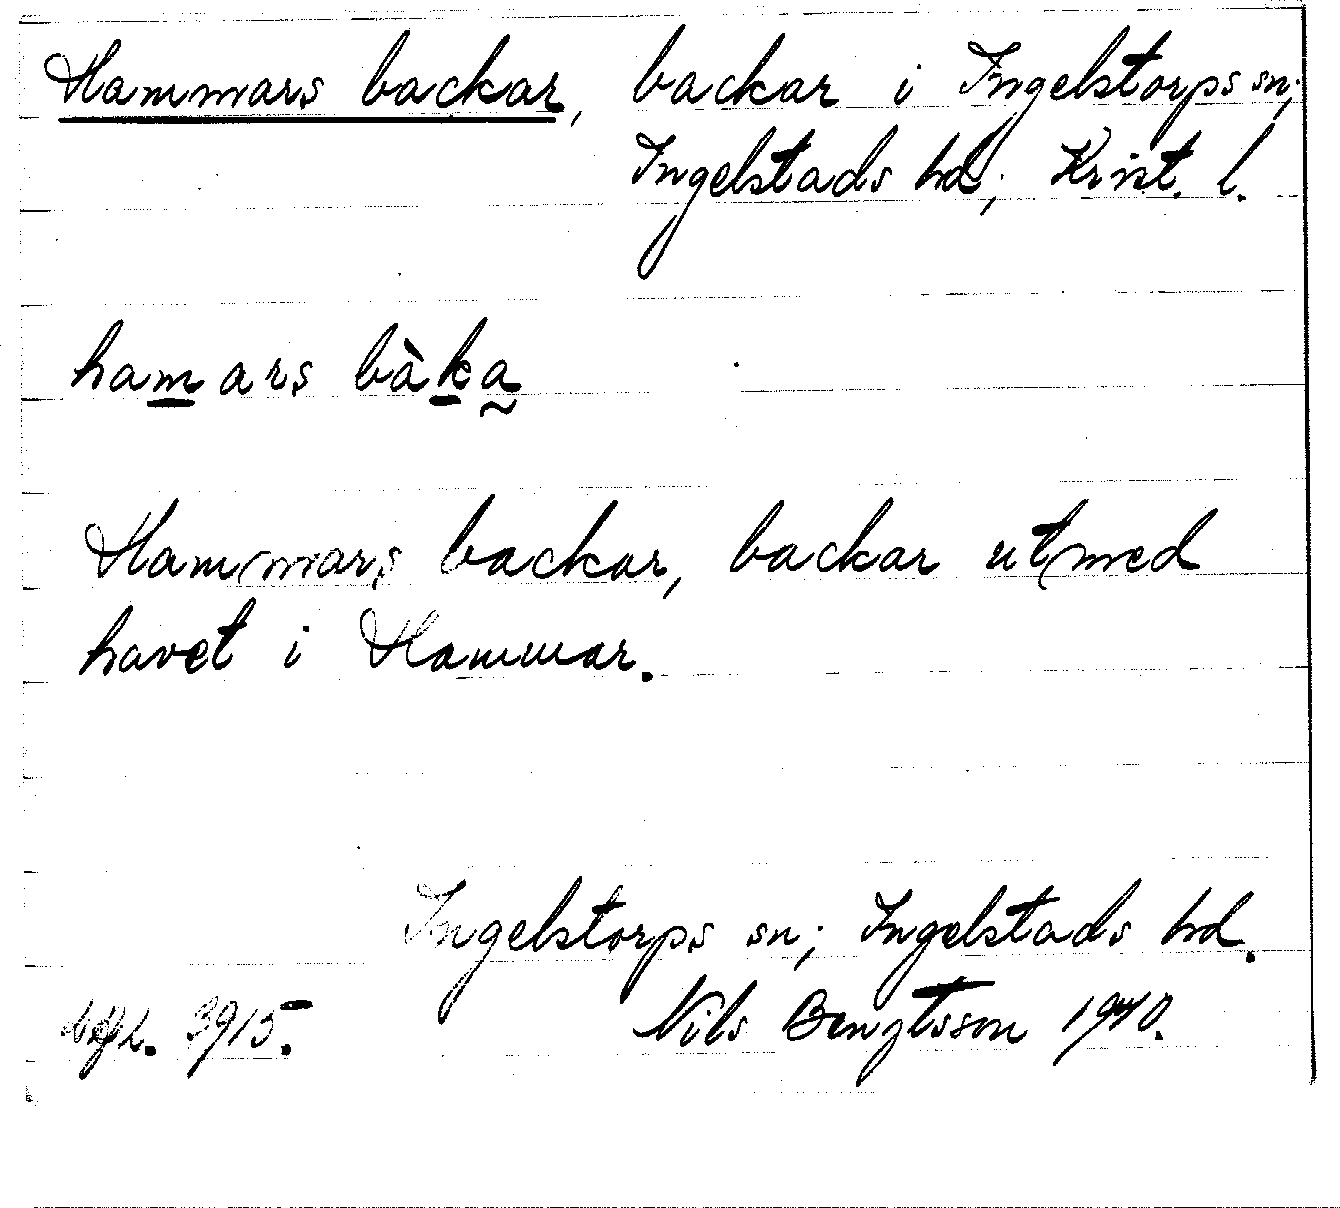 Hammars backar, backar i Ingelstorps sn;
Ingelstads hd; Krist. l.
hamars bàka
Hammars backar, backar utmed
havet i Hammar.
Ingelstorps sn; Ingelstads hd.
3915. Nils Bengtsson 1940.